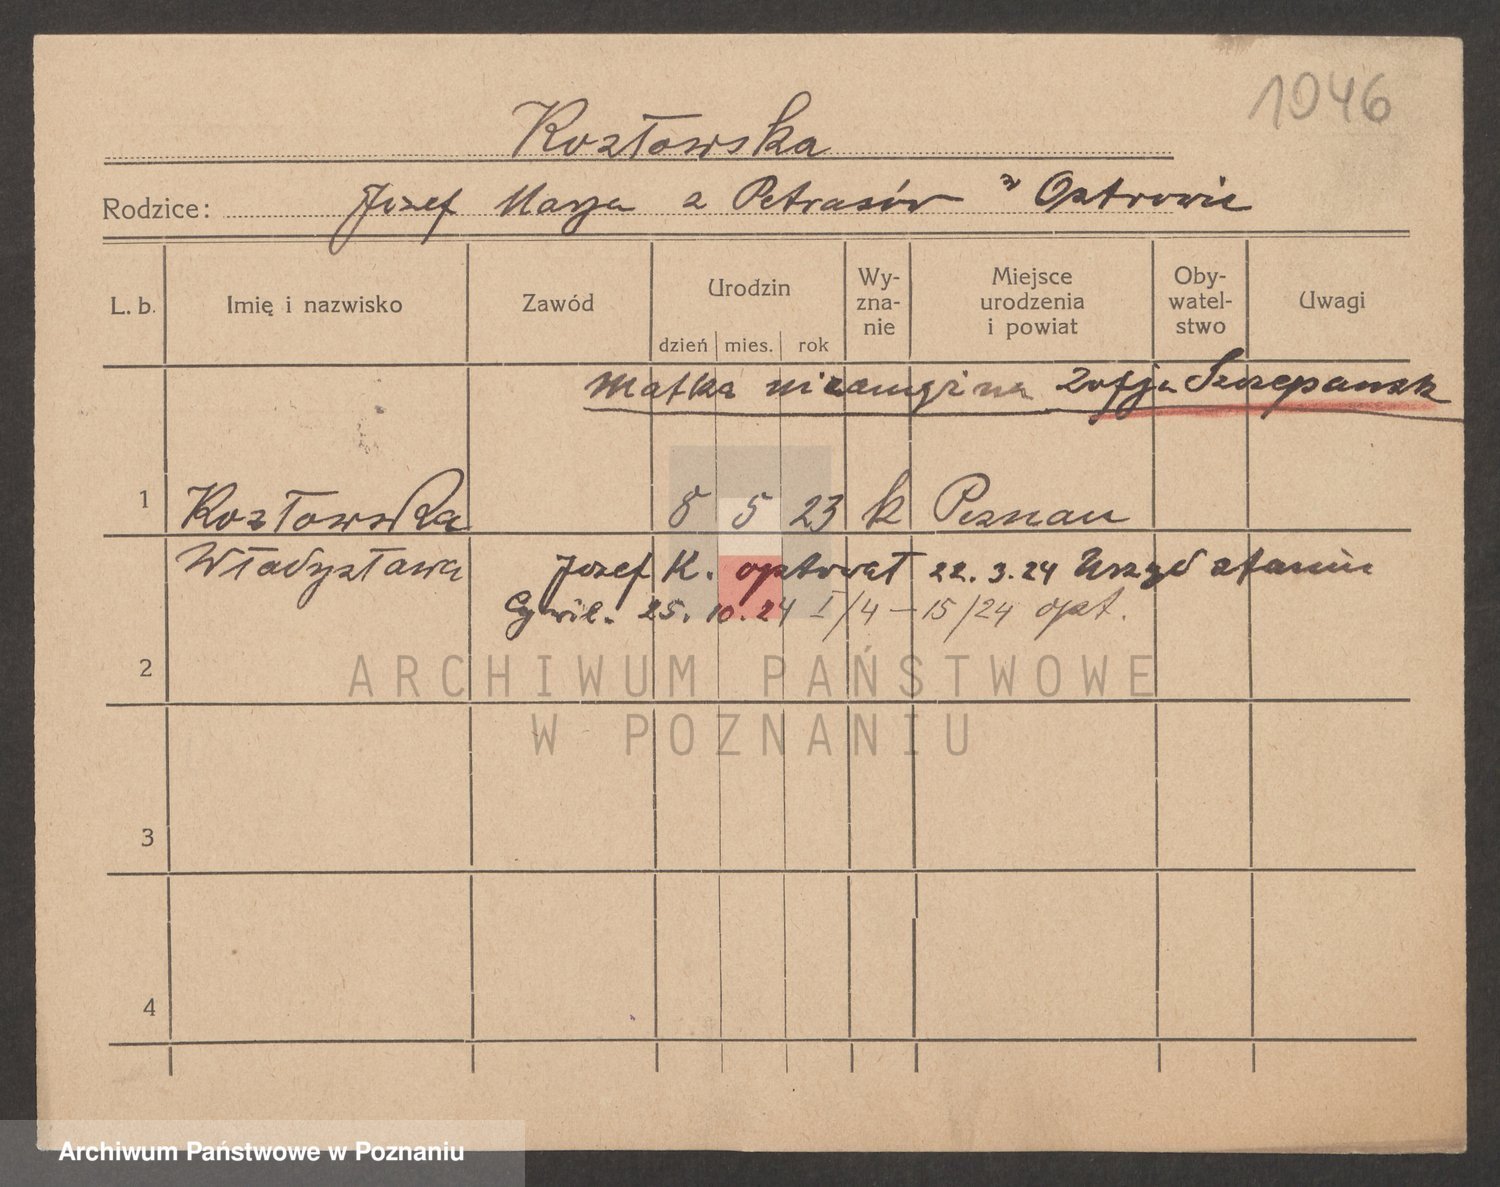 1046
Kozłowska
Rodzice: Jozef Marja z Petrasów z Ostrowie
L. b. Imię i nazwisko Zawód Urodzin dzień mies. rok Wy-zna-nie Miejsce urodzenia i powiat Oby-watel-stwo Uwagi
Matka Zofja Szczepansk
1 Kozłowska 8 5 23 k Poznan
Władysława Jozef K. optował 22.3.24 Urząd stanu
Cywil. 25.10.24 I/4-15/24 opt.
2
ARCHIWUM PAŃSTWOWE
W POZNANIU
3
4
Archiwum Państwowe w Poznaniu